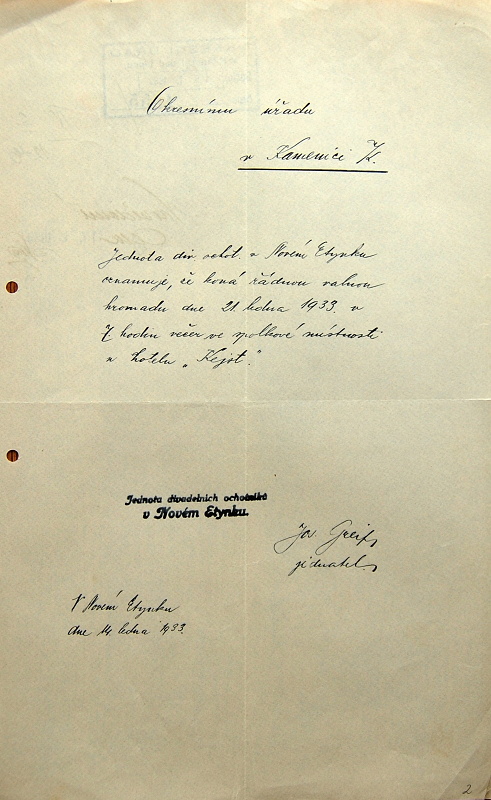 Okresnímu úřadu
v Kamenici n/L.
Jednota div. ochot. v Novém Etynku
oznamuje, že koná řádnou valnou
hromadu dne 21. ledna 1933. v
7 hodin večer ve spolkové místnosti
v hotelu „Kejst".
Jednota divadelních ochotníků
v Novém Etynku.
Jos. Greif,
jednatel.
V Novém Etynku
dne 14. ledna 1933.
2